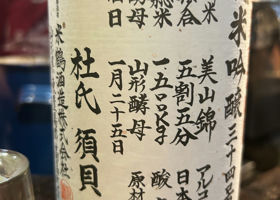 米吟醸三十四号
米 美山錦 アルコ
歩合 五割五分 日本
総米 一五〇〇kg 酸
酵母 山形酵母 原材
日 一月二十五日
杜氏 須貝
米鶴酒造株式会社